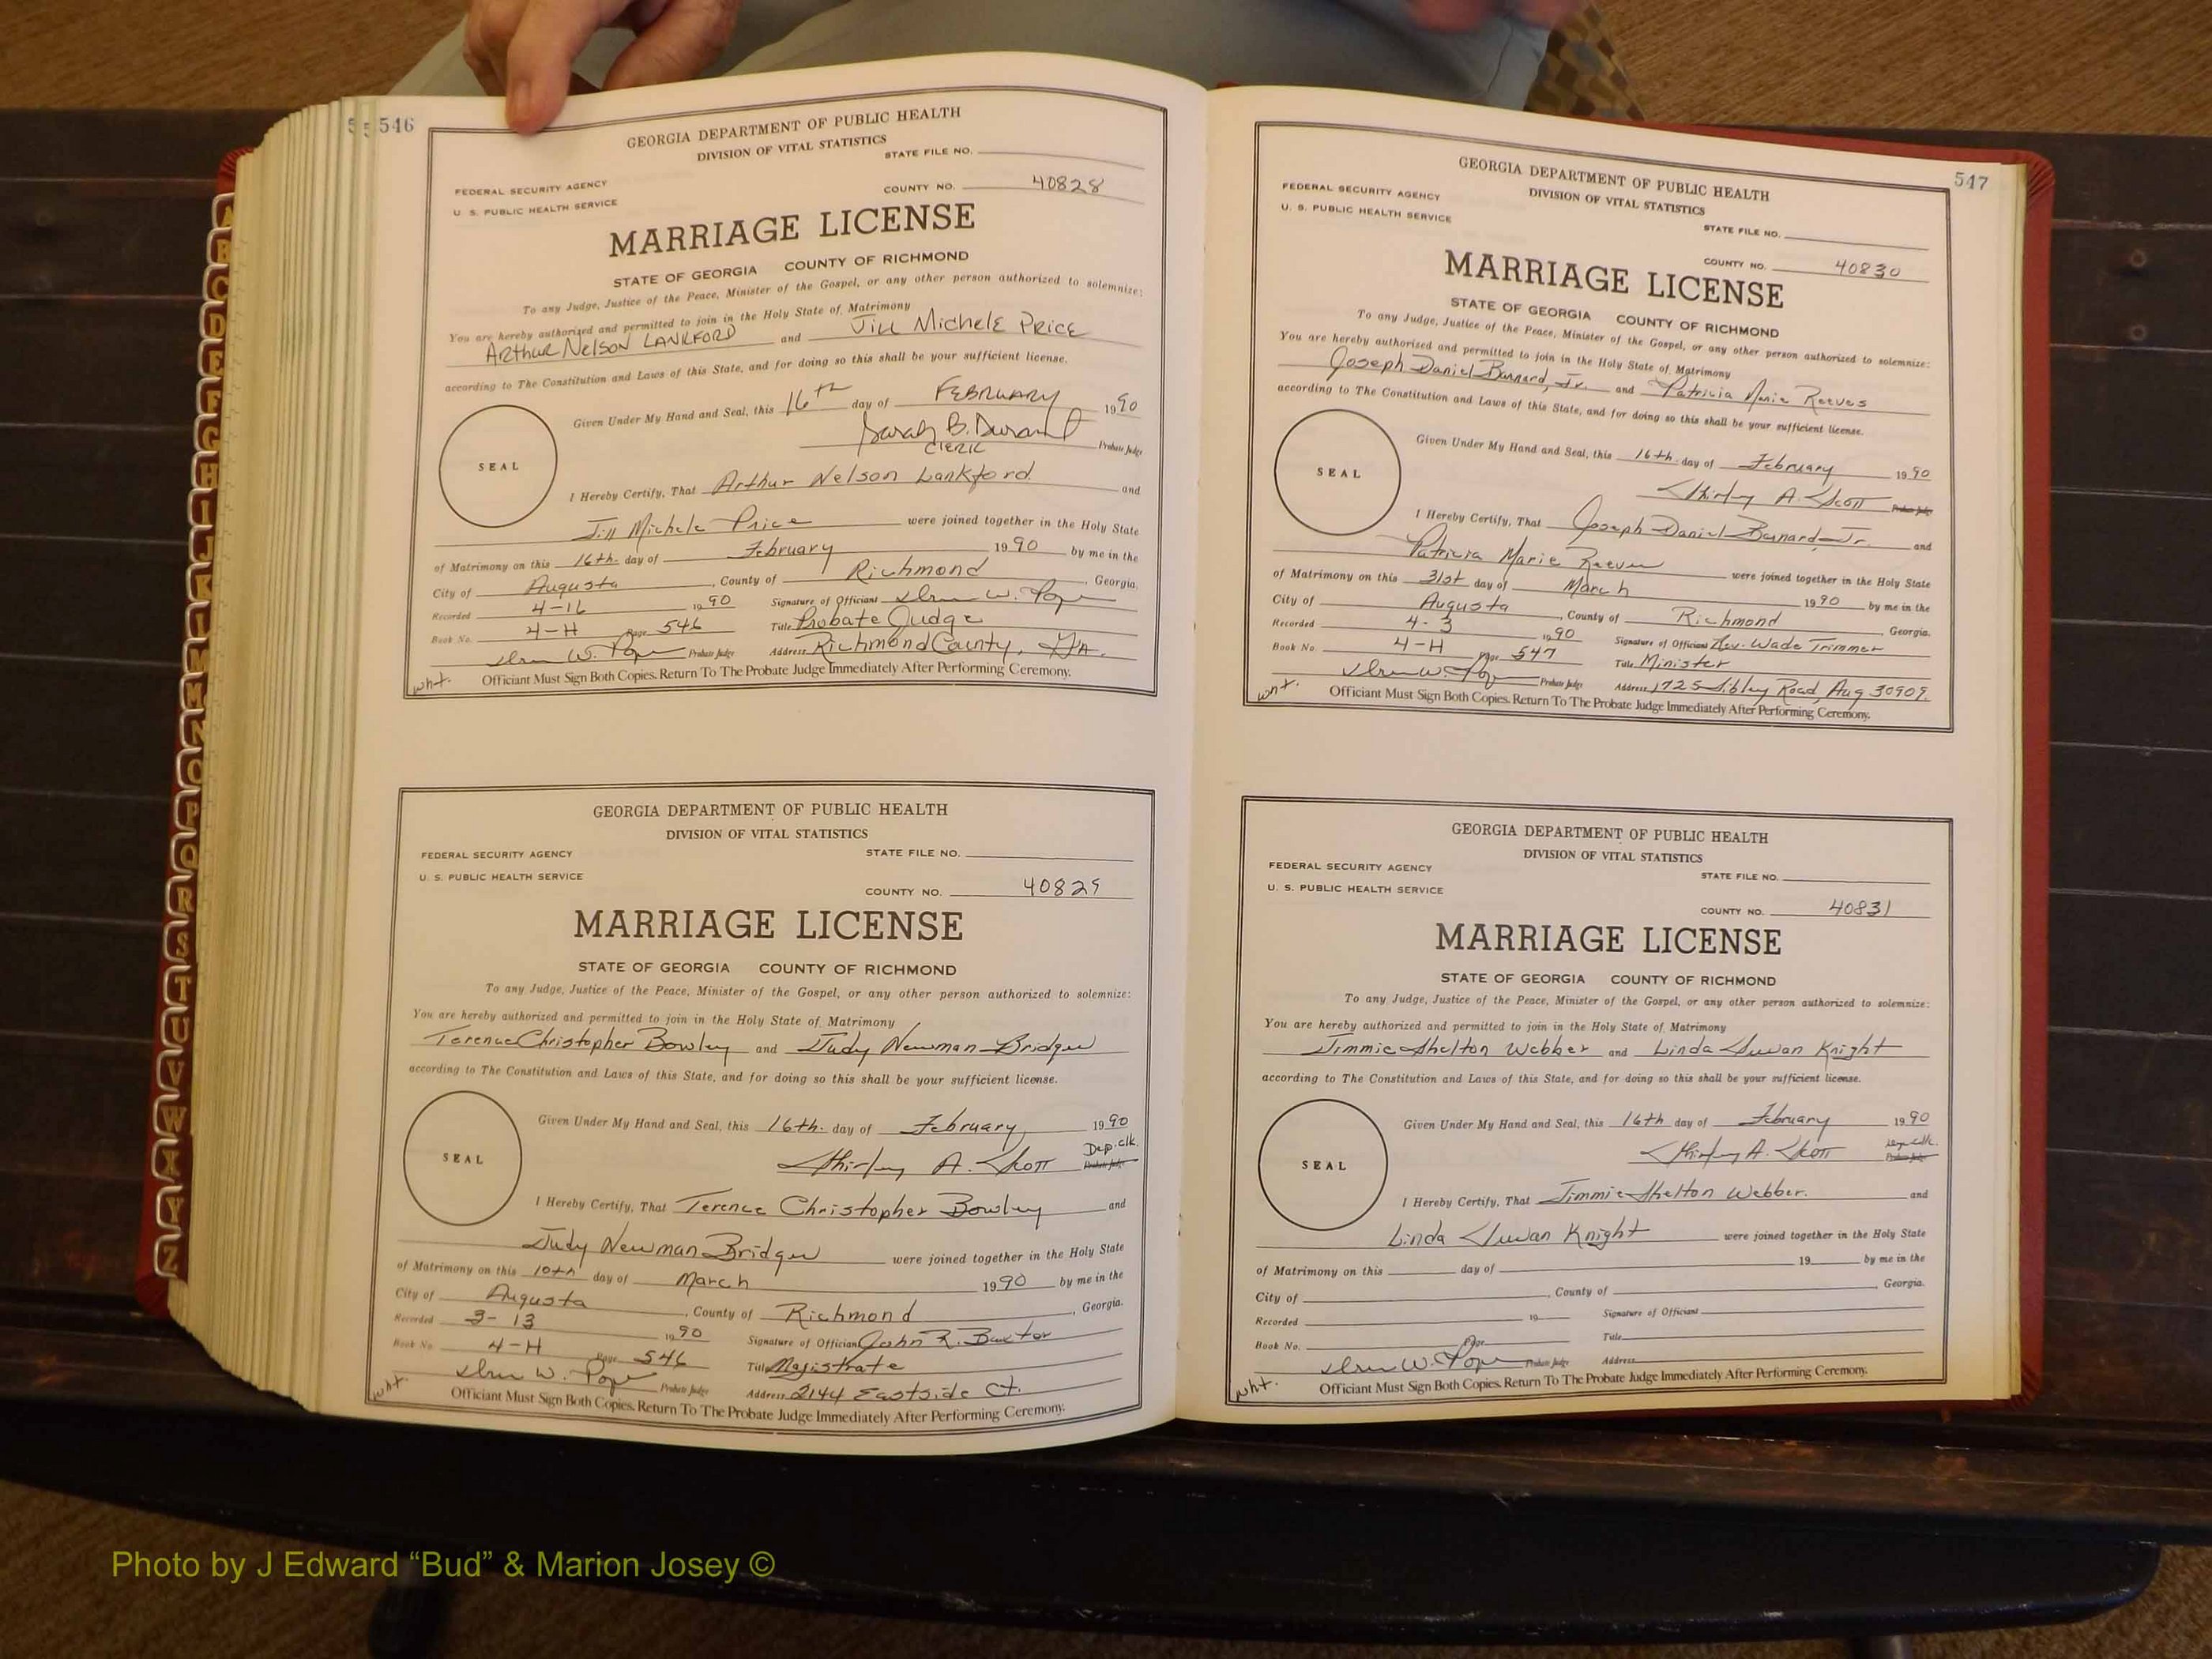 546
GEORGIA DEPARTMENT OF PUBLIC HEALTH
DIVISION OF VITAL STATISTICS
STATE FILE NO.
FEDERAL SECURITY AGENCY
U. S. PUBLIC HEALTH SERVICE
COUNTY NO. 40828
MARRIAGE LICENSE
STATE OF GEORGIA COUNTY OF RICHMOND
To any Judge, Justice of the Peace, Minister of the Gospel, or any other person authorized to solemnize:
You are hereby authorized and permitted to join in the Holy State of Matrimony
Arthur Nelson LANKFORD and Jill Michele Price
according to The Constitution and Laws of this State, and for doing so this shall be your sufficient license.
Given Under My Hand and Seal, this 16th day of FEBRUARY 1990
Sarah B. Durant Probate Judge
CLERK
SEAL
I Hereby Certify, That Arthur Nelson Lankford and
Jill Michele Price were joined together in the Holy State
of Matrimony on this 16th. day of February 1990 by me in the
City of Augusta, County of Richmond, Georgia.
Recorded 4-16 1990 Signature of Officiant W. Pope
Book No. 4-H Page 546 Title Probate Judge
W. Pope Probate Judge Address Richmond County, GA.
wht. Officiant Must Sign Both Copies. Return To The Probate Judge Immediately After Performing Ceremony.
GEORGIA DEPARTMENT OF PUBLIC HEALTH
DIVISION OF VITAL STATISTICS
FEDERAL SECURITY AGENCY STATE FILE NO.
U. S. PUBLIC HEALTH SERVICE
COUNTY NO. 40829
MARRIAGE LICENSE
STATE OF GEORGIA COUNTY OF RICHMOND
To any Judge, Justice of the Peace, Minister of the Gospel, or any other person authorized to solemnize:
You are hereby authorized and permitted to join in the Holy State of Matrimony
Terence Christopher Bowley and Judy Newman Bridges
according to The Constitution and Laws of this State, and for doing so this shall be your sufficient license.
Given Under My Hand and Seal, this 16th. day of February 1990
Shirley A. Scott Dep. clk. Probate Judge
SEAL
I Hereby Certify, That Terence Christopher Bowley and
Judy Newman Bridges were joined together in the Holy State
of Matrimony on this 10th day of March 1990 by me in the
City of Augusta, County of Richmond, Georgia.
Recorded 3-13 1990 Signature of Officiant John R. Baxter
Book No. 4-H Page 546 Title Magistrate
W. Pope Probate Judge Address 2144 Eastside Ct.
wht. Officiant Must Sign Both Copies. Return To The Probate Judge Immediately After Performing Ceremony.
547
GEORGIA DEPARTMENT OF PUBLIC HEALTH
DIVISION OF VITAL STATISTICS
FEDERAL SECURITY AGENCY
U. S. PUBLIC HEALTH SERVICE
STATE FILE NO.
COUNTY NO. 40830
MARRIAGE LICENSE
STATE OF GEORGIA COUNTY OF RICHMOND
To any Judge, Justice of the Peace, Minister of the Gospel, or any other person authorized to solemnize:
You are hereby authorized and permitted to join in the Holy State of Matrimony
Joseph Daniel Barnard, Jr. and Patricia Marie Reeves
according to The Constitution and Laws of this State, and for doing so this shall be your sufficient license.
Given Under My Hand and Seal, this 16th. day of February 1990
Shirley A. Scott Probate Judge
SEAL
I Hereby Certify, That Joseph Daniel Barnard, Jr. and
Patricia Marie Reeves were joined together in the Holy State
of Matrimony on this 31st day of March 1990 by me in the
City of Augusta, County of Richmond, Georgia.
Recorded 4-3 1990 Signature of Officiant Rev. Wade Trimmer
Book No. 4-H Page 547 Title Minister
W. Pope Probate Judge Address 1725 Sibley Road, Aug 30909.
wht. Officiant Must Sign Both Copies. Return To The Probate Judge Immediately After Performing Ceremony.
GEORGIA DEPARTMENT OF PUBLIC HEALTH
DIVISION OF VITAL STATISTICS
FEDERAL SECURITY AGENCY STATE FILE NO.
U. S. PUBLIC HEALTH SERVICE
COUNTY NO. 40831
MARRIAGE LICENSE
STATE OF GEORGIA COUNTY OF RICHMOND
To any Judge, Justice of the Peace, Minister of the Gospel, or any other person authorized to solemnize:
You are hereby authorized and permitted to join in the Holy State of Matrimony
Jimmie Shelton Webber and Linda Suwan Knight
according to The Constitution and Laws of this State, and for doing so this shall be your sufficient license.
Given Under My Hand and Seal, this 16th day of February 1990
Shirley A. Scott Probate Judge
SEAL
I Hereby Certify, That Jimmie Shelton Webber. and
Linda Suwan Knight were joined together in the Holy State
of Matrimony on this day of 19 by me in the
City of , County of , Georgia.
Recorded 19 Signature of Officiant
Book No. Page Title
W. Pope Probate Judge Address
wht. Officiant Must Sign Both Copies. Return To The Probate Judge Immediately After Performing Ceremony.
A
B
C
D
E
F
G
H
I
J
K
L
M
Mc
N
O
P
Q
R
S
T
U
V
W
X
Y
Z
Photo by J Edward “Bud” & Marion Josey ©